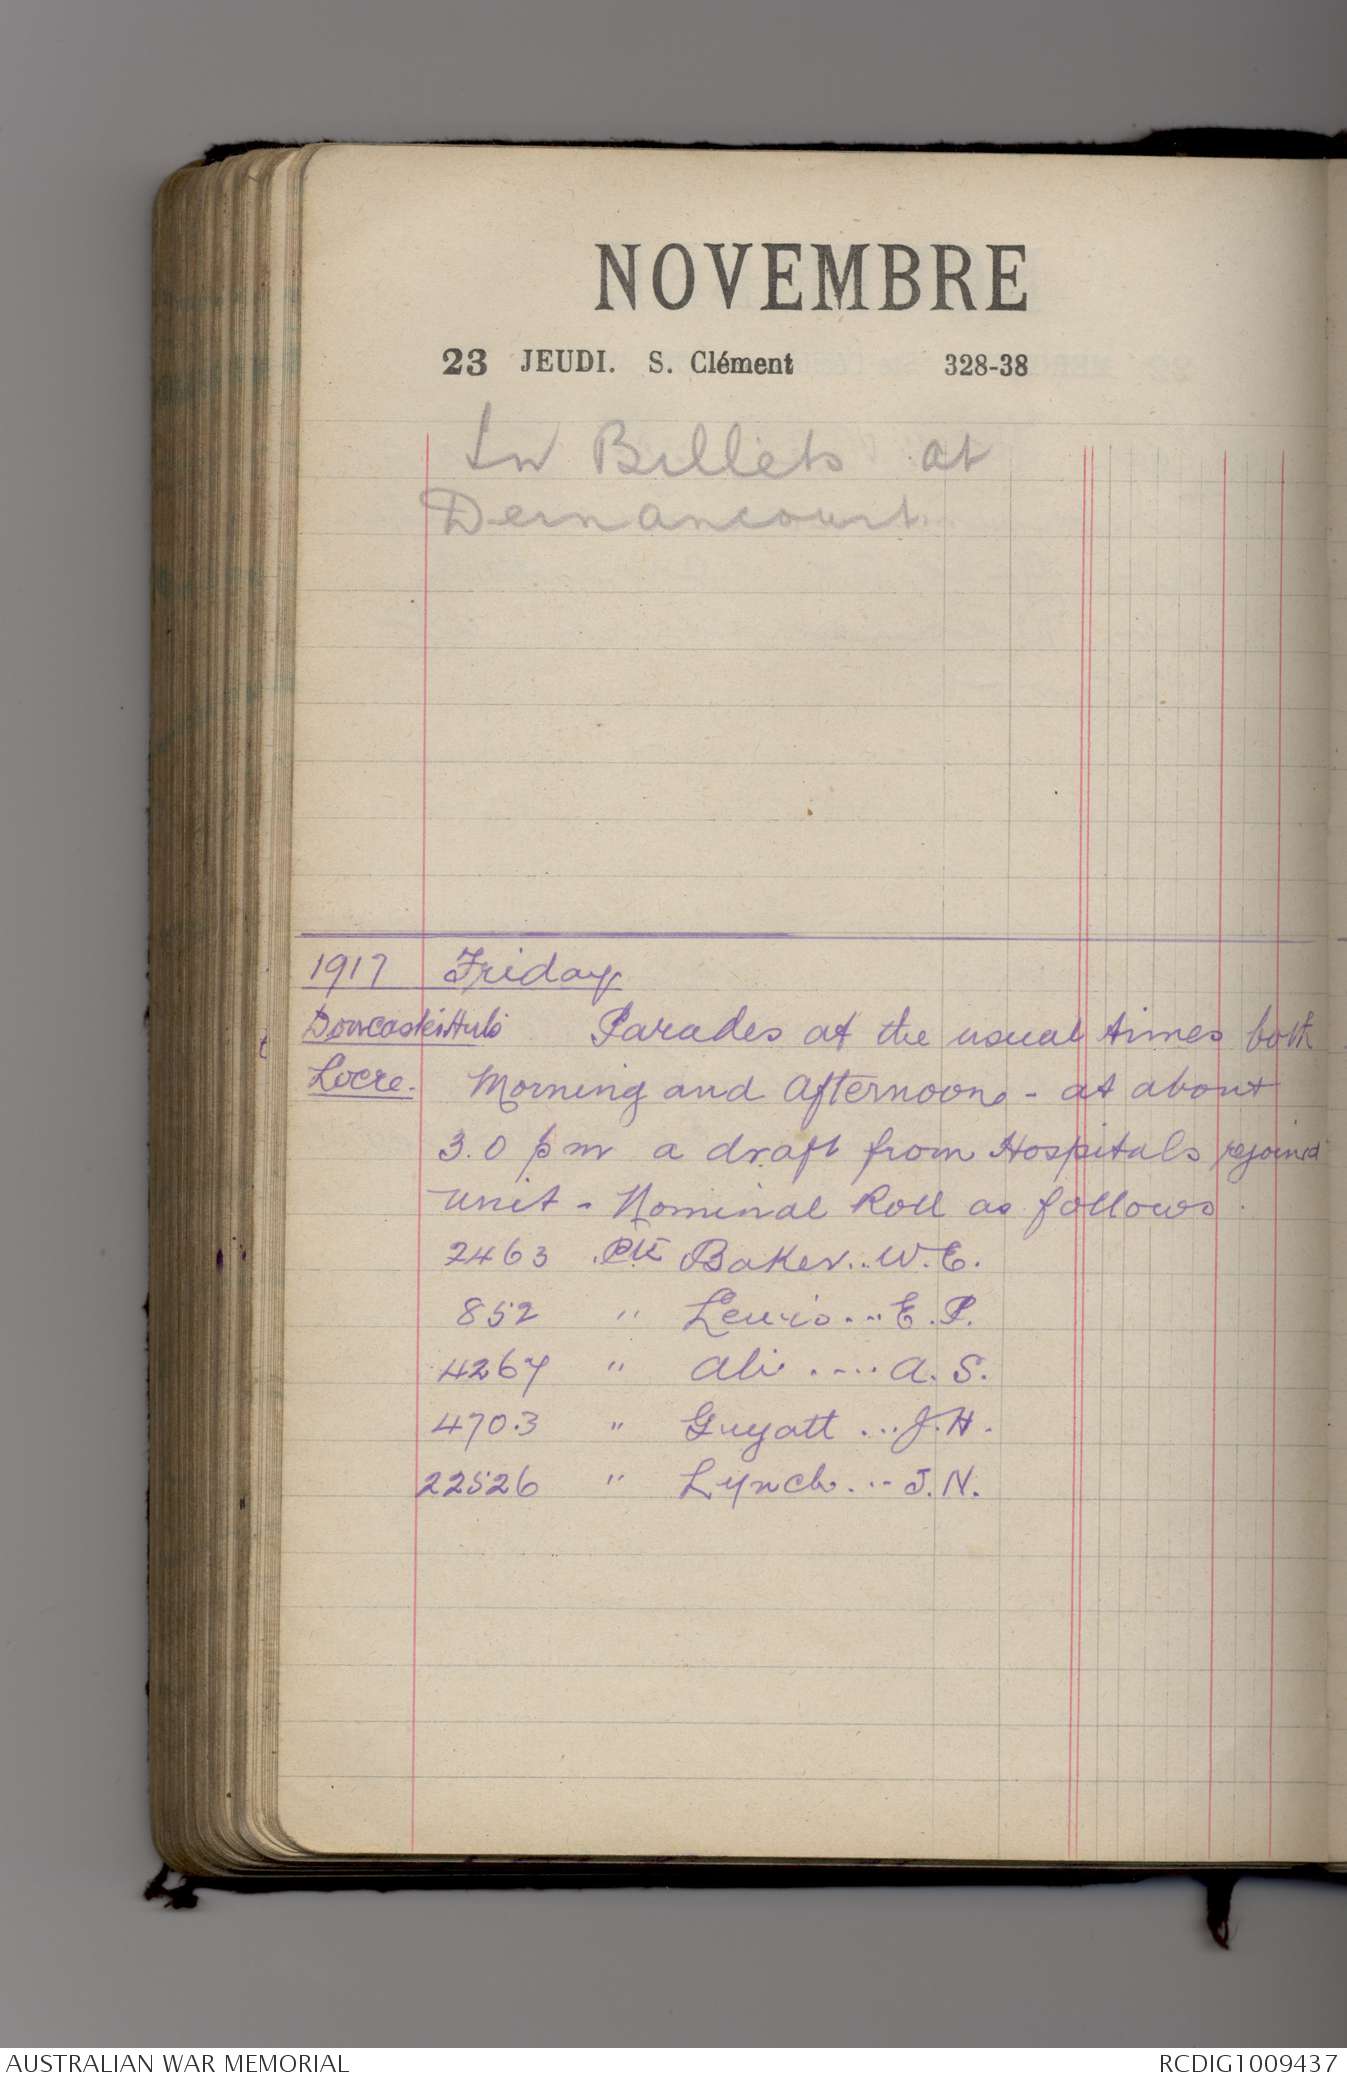 NOVEMBRE
23 JEUDI. S. Clément 328-38
In Billets at
Dernancourt.
1917 Friday
Doncaster Huts Parades at the usual times both
Locre. Morning and afternoon - at about
3.0 pm a draft from Hospitals rejoined
unit - Nominal Roll as follows.
2463 Pte Baker.. W.E.
852 " Lewis... E.P.
4267 " Ali .... A.S.
4703 " Guyatt ... J.H.
22526 " Lynch ... J.N.
AUSTRALIAN WAR MEMORIAL RCDIG1009437